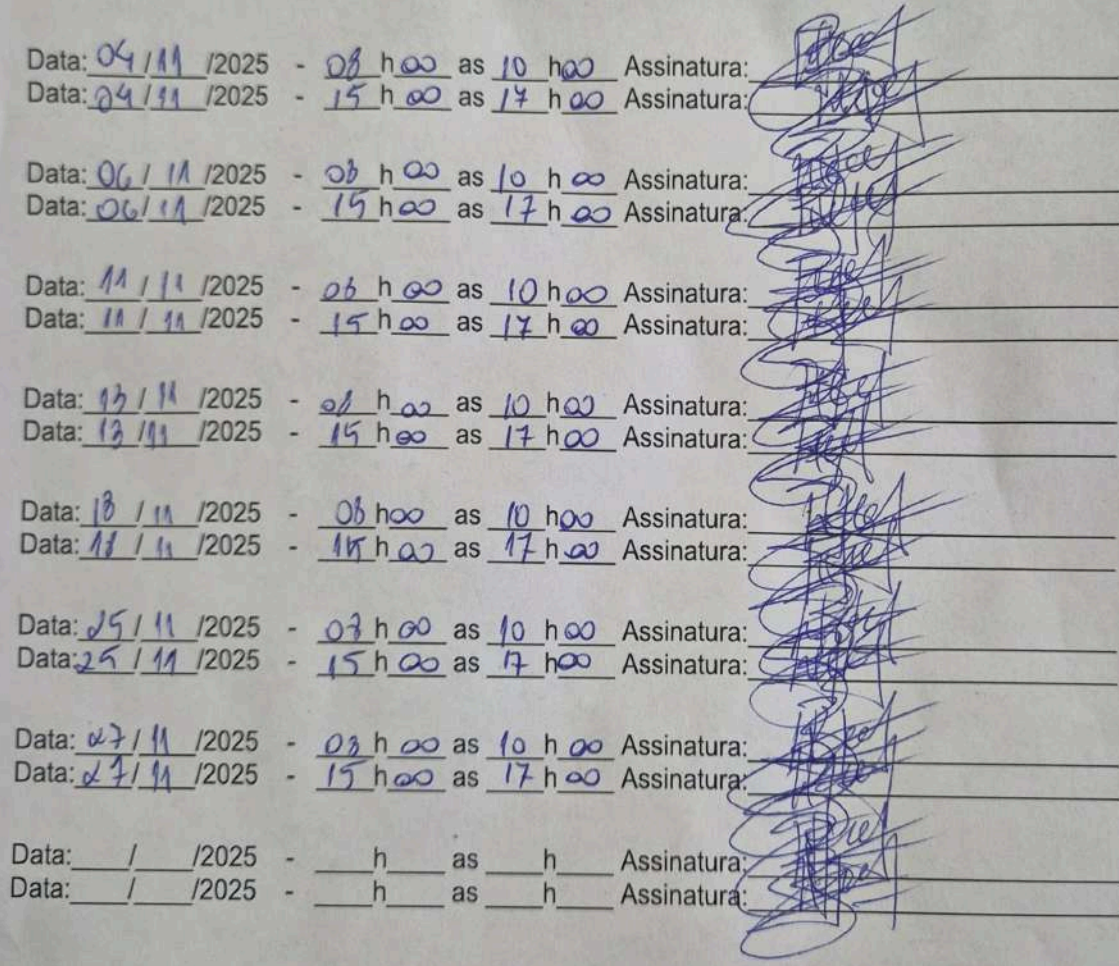 Data: 04/11/2025 - 08 h 00 as 10 h 00 Assinatura:
Data: 04/11/2025 - 15 h 00 as 17 h 00 Assinatura:
Data: 06/11/2025 - 08 h 00 as 10 h 00 Assinatura:
Data: 06/11/2025 - 15 h 00 as 17 h 00 Assinatura:
Data: 11/11/2025 - 08 h 00 as 10 h 00 Assinatura:
Data: 11/11/2025 - 15 h 00 as 17 h 00 Assinatura:
Data: 13/11/2025 - 08 h 00 as 10 h 00 Assinatura:
Data: 13/11/2025 - 15 h 00 as 17 h 00 Assinatura:
Data: 18/11/2025 - 08 h 00 as 10 h 00 Assinatura:
Data: 18/11/2025 - 15 h 00 as 17 h 00 Assinatura:
Data: 25/11/2025 - 08 h 00 as 10 h 00 Assinatura:
Data: 25/11/2025 - 15 h 00 as 17 h 00 Assinatura:
Data: 27/11/2025 - 08 h 00 as 10 h 00 Assinatura:
Data: 27/11/2025 - 15 h 00 as 17 h 00 Assinatura:
Data:____/____/2025 - ____h____ as ____h____ Assinatura:
Data:____/____/2025 - ____h____ as ____h____ Assinatura: